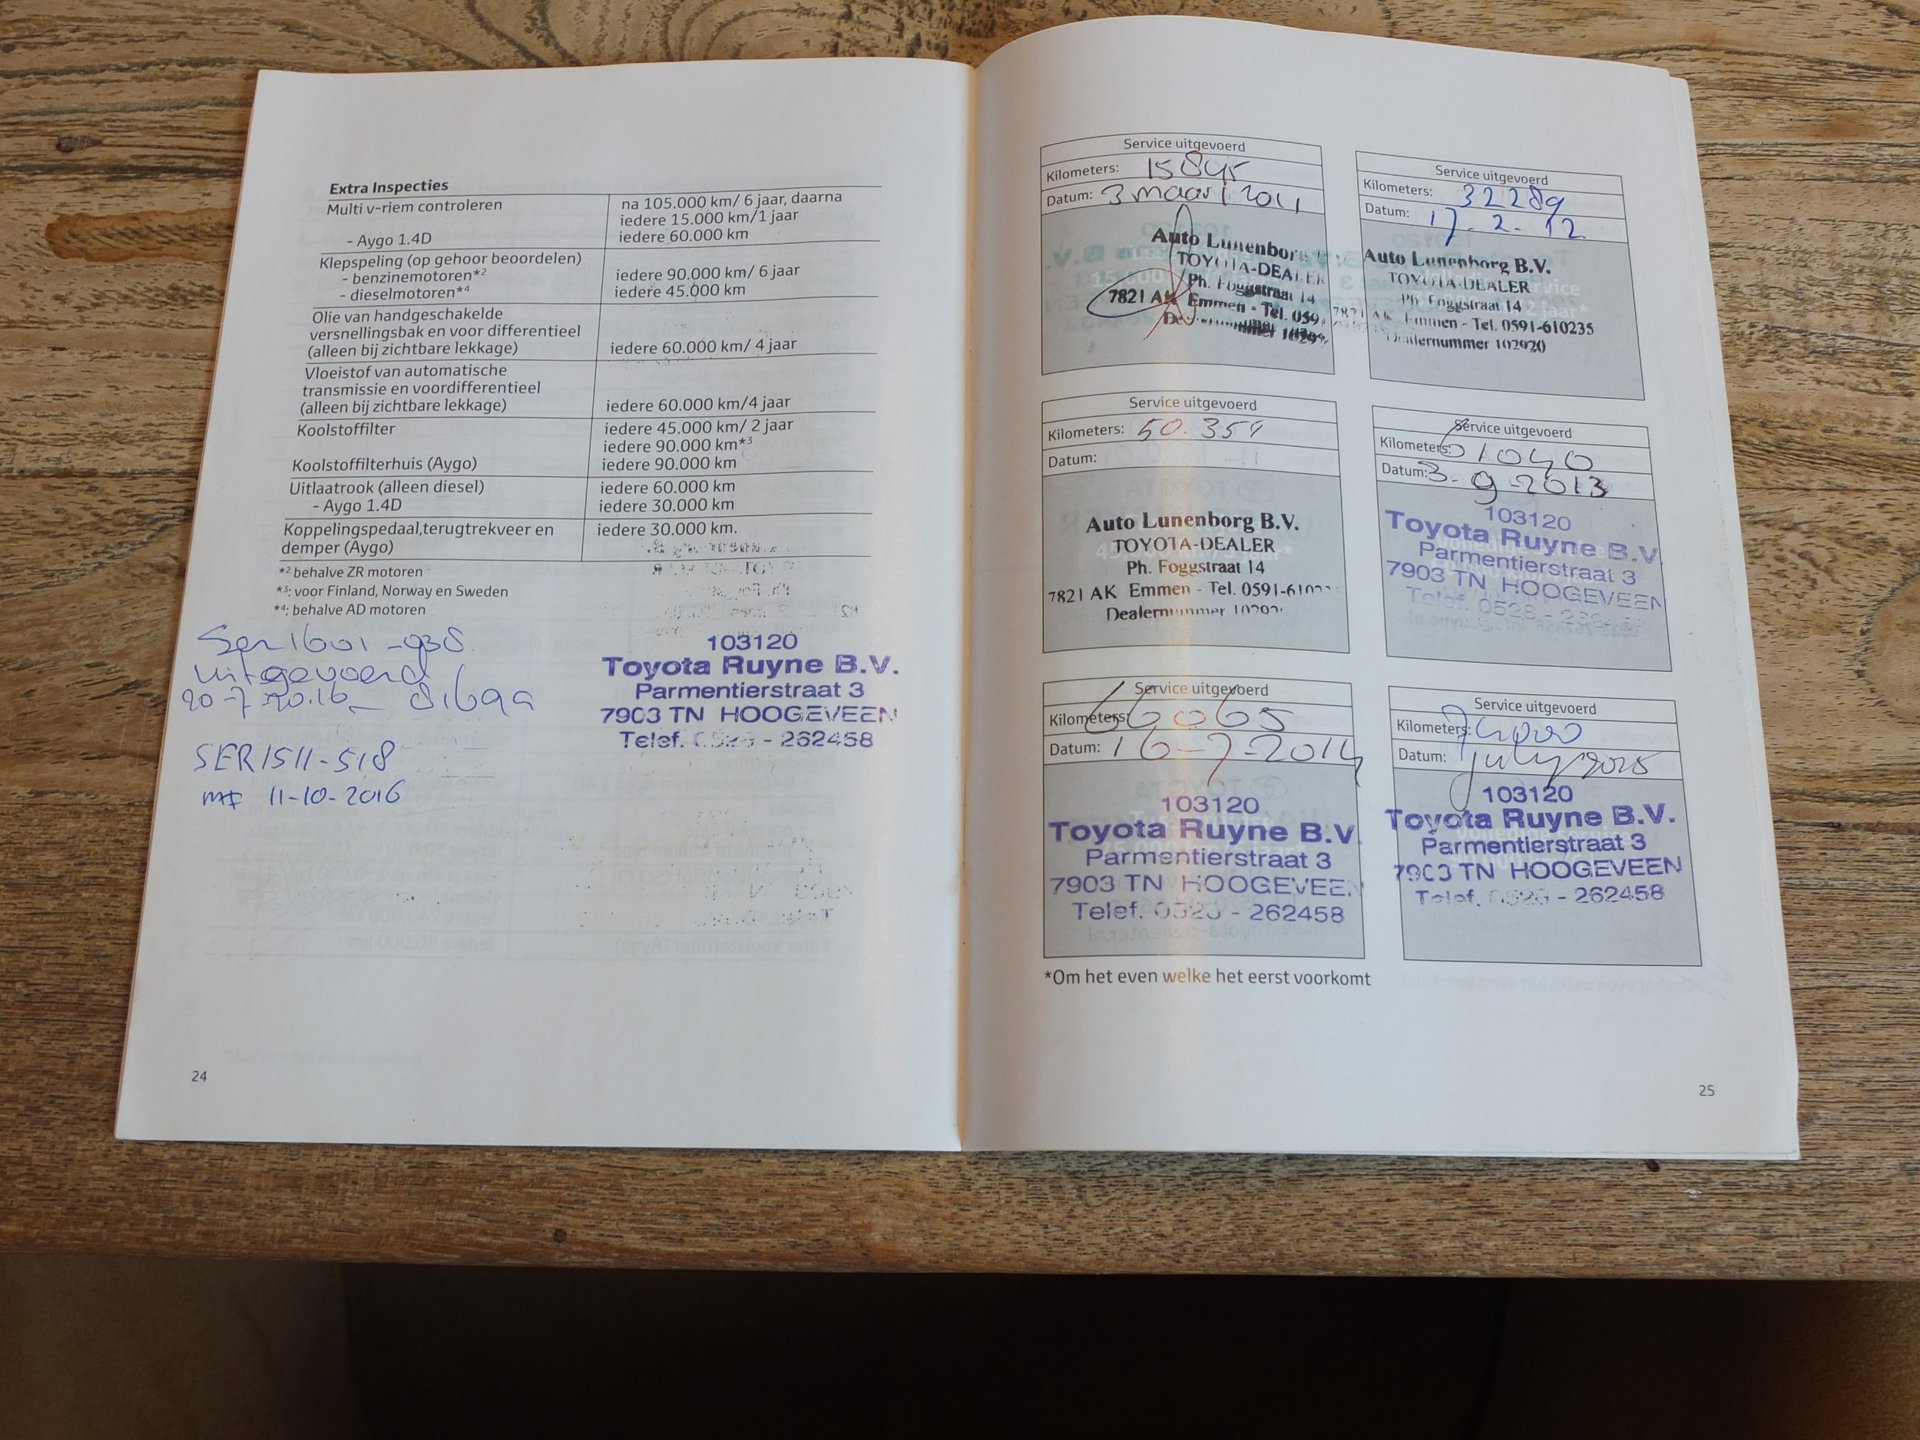 Extra Inspecties
Multi v-riem controleren na 105.000 km/ 6 jaar, daarna
iedere 15.000 km/1 jaar
- Aygo 1.4D iedere 60.000 km
Klepspeling (op gehoor beoordelen)
- benzinemotoren*2 iedere 90.000 km/ 6 jaar
- dieselmotoren*4 iedere 45.000 km
Olie van handgeschakelde
versnellingsbak en voor differentieel
(alleen bij zichtbare lekkage) iedere 60.000 km/ 4 jaar
Vloeistof van automatische
transmissie en voordifferentieel
(alleen bij zichtbare lekkage) iedere 60.000 km/4 jaar
Koolstoffilter iedere 45.000 km/ 2 jaar
iedere 90.000 km*3
Koolstoffilterhuis (Aygo) iedere 90.000 km
Uitlaatrook (alleen diesel) iedere 60.000 km
- Aygo 1.4D iedere 30.000 km
Koppelingspedaal,terugtrekveer en iedere 30.000 km.
demper (Aygo)
*2 behalve ZR motoren
*3: voor Finland, Norway en Sweden
*4: behalve AD motoren
Ser 1601-938
uitgevoerd
20-7-2016
SER 1511-518
11-10-2016
103120
Toyota Ruyne B.V.
Parmentierstraat 3
7903 TN HOOGEVEEN
Telef. 0528 - 262458
24
Service uitgevoerd
Kilometers: 15895
Datum: 3 maart 2011
Auto Lunenborg
TOYOTA-DEALER
Ph. Foggstraat 14
7821 AK Emmen - Tel. 059
Dealernummer 10292
Service uitgevoerd
Kilometers: 32289
Datum: 17.2.12
Auto Lunenborg B.V.
TOYOTA-DEALER
Ph. Foggstraat 14
7821 AK Emmen - Tel. 0591-610235
Dealernummer 102920
Service uitgevoerd
Kilometers: 50.354
Datum:
Auto Lunenborg B.V.
TOYOTA-DEALER
Ph. Foggstraat 14
7821 AK Emmen - Tel. 0591-610
Dealernummer 10292
Service uitgevoerd
Kilometers: 61040
Datum: 3-9-2013
103120
Toyota Ruyne B.V
Parmentierstraat 3
7903 TN HOOGEVEEN
Telef. 0528 - 262458
Service uitgevoerd
Kilometers: 66065
Datum: 16-7-2014
103120
Toyota Ruyne B.V
Parmentierstraat 3
7903 TN HOOGEVEEN
Telef. 0528 - 262458
Service uitgevoerd
Kilometers: 74000
Datum: july 2015
103120
Toyota Ruyne B.V.
Parmentierstraat 3
7903 TN HOOGEVEEN
Telef. 0528 - 262458
*Om het even welke het eerst voorkomt
25